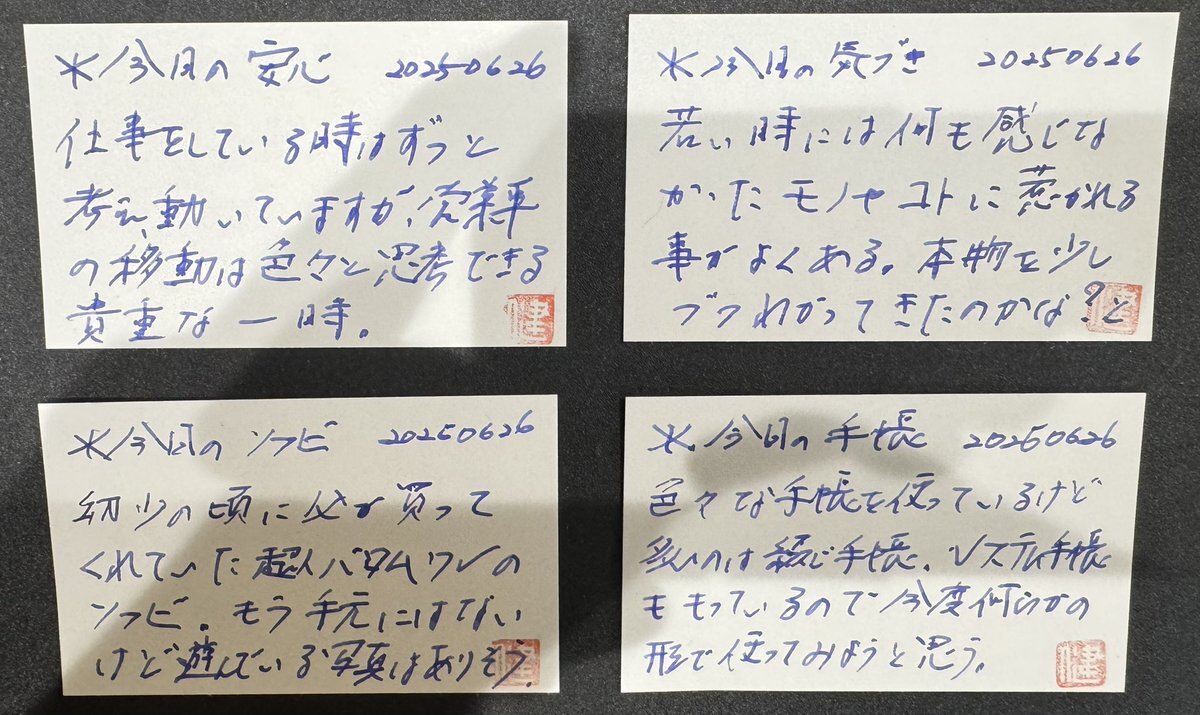 *今日の安心 20250626
仕事をしている時はずっと
考え、動いていますが、営業車
の移動は色々と思考できる
貴重な一時。
健
*今日の気づき 20250626
若い時には何も感じな
かったモノやコトに惹かれる
事がよくある。本物を少し
ヅツわかってきたのかな?と
健
*今日のソフビ 20250626
幼少の頃に父が買って
くれていた超人バロム・ワンの
ソフビ。もう手元にはない
けど遊んでいる写真はありそう。
健
*今日の手帳 20250626
色々な手帳を使っているけど
多いのは綴じ手帳。システム手帳
ももっているので今度何らかの
形で使ってみようと思う。
健